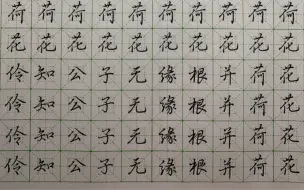 荷荷荷荷荷荷荷荷荷荷
花花花花花花花花花花
伶知公子无缘根并荷花
伶知公子无缘根并荷花
伶知公子无缘根并荷花
伶知公子无缘根并荷花